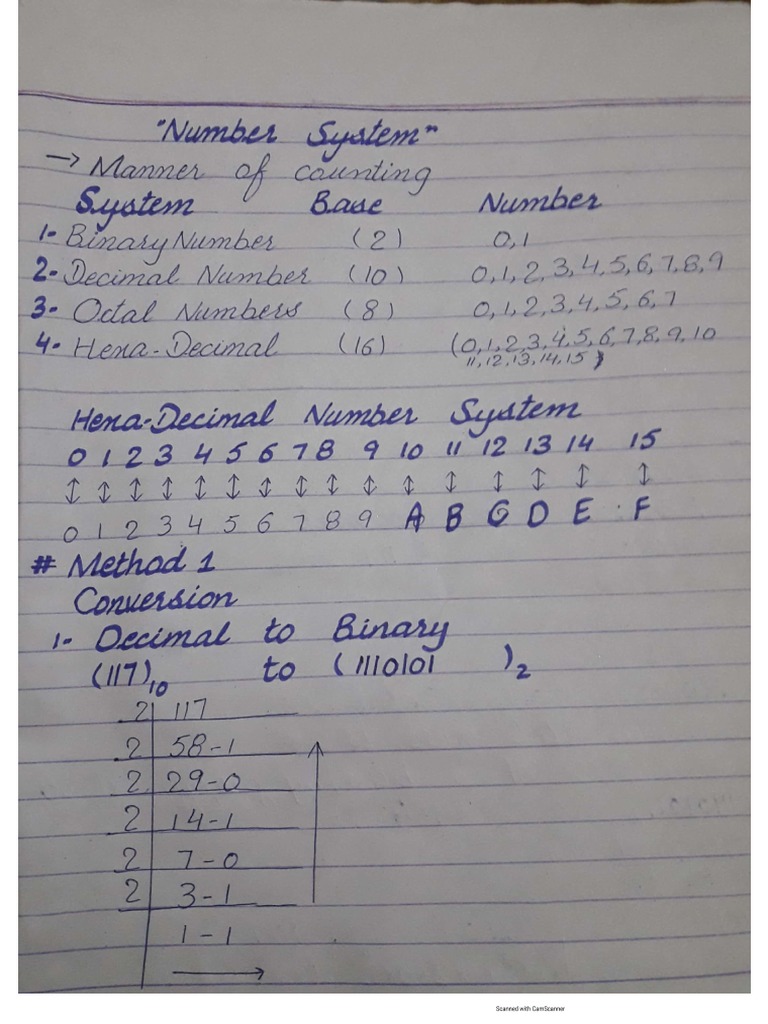 "Number System"
→ Manner of counting
System Base Number
1- Binary Number (2) 0,1
2- Decimal Number (10) 0,1,2,3,4,5,6,7,8,9
3- Octal Numbers (8) 0,1,2,3,4,5,6,7
4- Hexa-Decimal (16) (0,1,2,3,4,5,6,7,8,9,10
11,12,13,14,15)
Hexa-Decimal Number System
0 1 2 3 4 5 6 7 8 9 10 11 12 13 14 15
↕ ↕ ↕ ↕ ↕ ↕ ↕ ↕ ↕ ↕ ↕ ↕ ↕ ↕ ↕ ↕
0 1 2 3 4 5 6 7 8 9 A B C D E F
# Method 1
Conversion
1- Decimal to Binary
(117)₁₀ to (1110101 )₂
2 117
2 58-1
2 29-0
2 14-1
2 7-0
2 3-1
1-1
Scanned with CamScanner